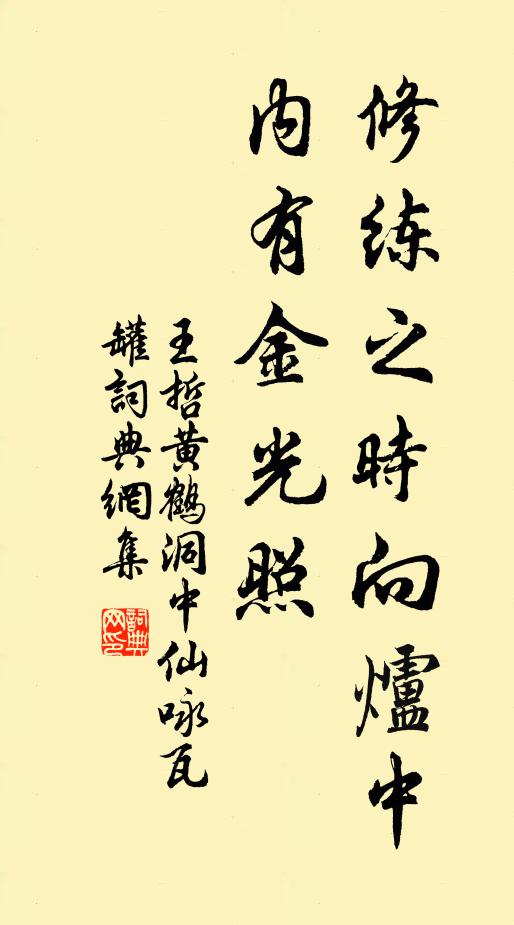 修練之時向爐中
內有金光照
王哲黃鶴洞中仙咏瓦
罐詞典網集
詞典
网印